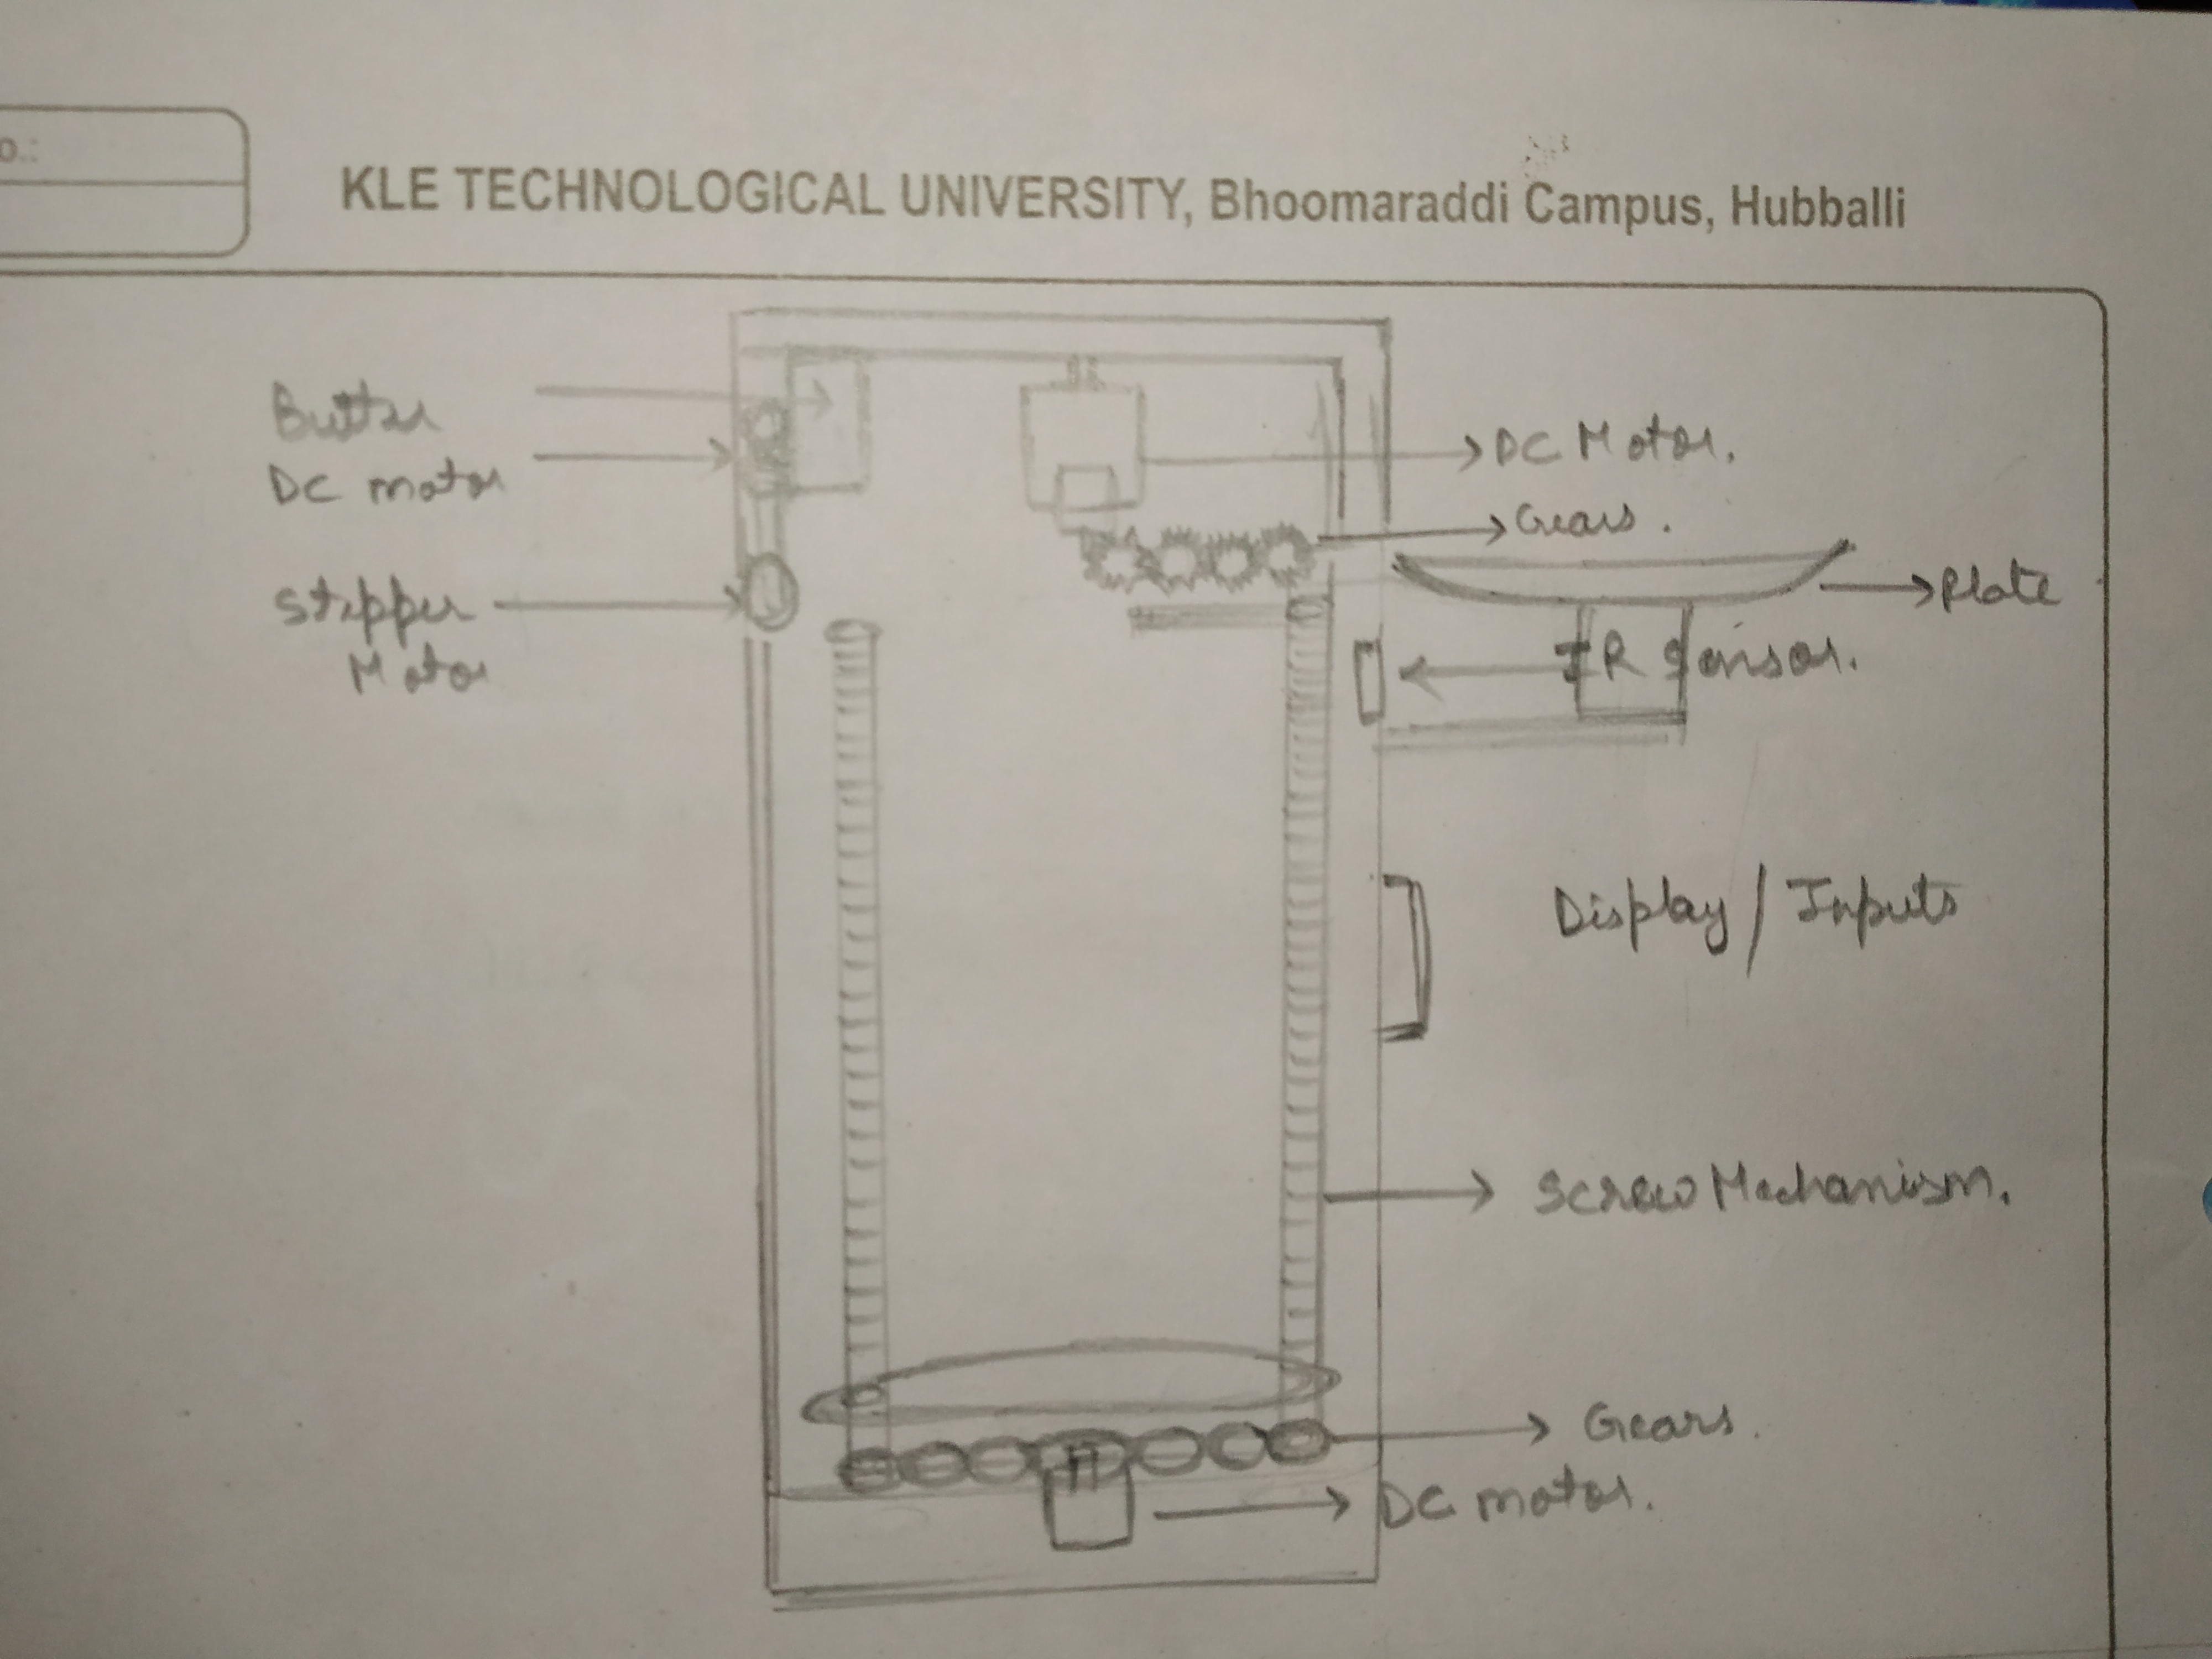 o.:
KLE TECHNOLOGICAL UNIVERSITY, Bhoomaraddi Campus, Hubballi
Butter
DC motor
Stepper
Motor
DC Motor.
Gears.
Plate
IR Sensor.
Display / Inputs
Screw Mechanism.
Gears.
DC motor.